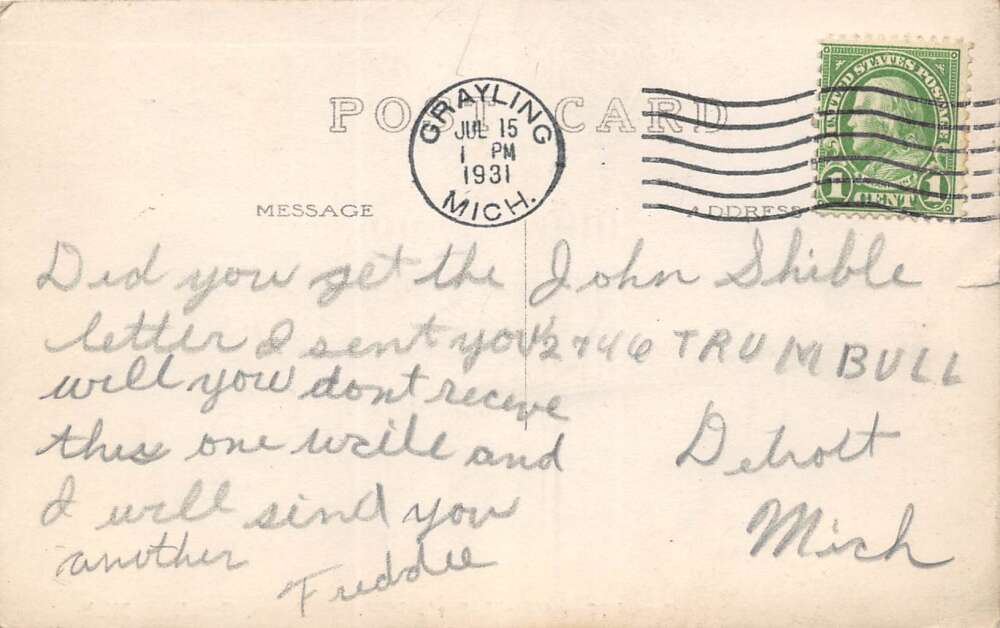 POST CARD
GRAYLING
JUL 15
1 PM
1931
MICH.
UNITED STATES POSTAGE
1 CENT 1
MESSAGE
ADDRESS
Did you get the
letter I sent you
will you dont receve
this one write and
I will send you
another
Freddie
John Shible
2746 TRUMBULL
Detroit
Mich